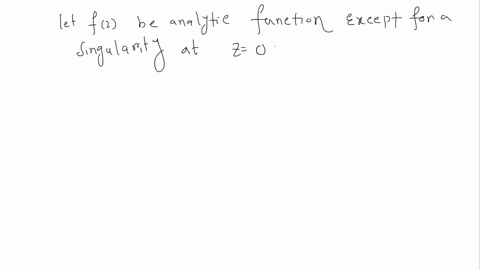 let f(z) be analytic function except for a
singularity at z=0